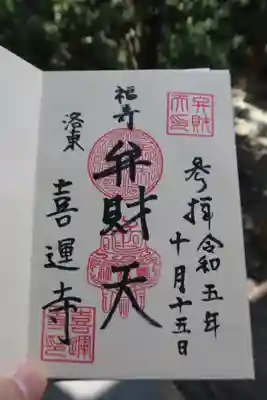 参拝 令和五年
十月十五日
福寿
弁財天
洛東
喜運寺
弁財
天印